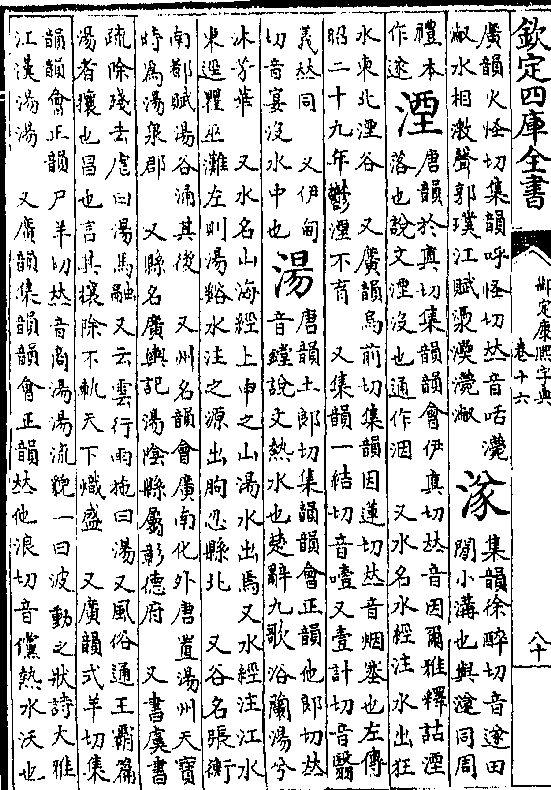 欽定四庫全書
御定康熙字典
卷十六
八十
廣韻火怪切集韻呼怪切𠀤音咶灊
㵽水相激聲郭璞江賦㵽
㴚
集韻徐醉切音遂田
間小溝也與遂同周
禮本作遂
湮
唐韻於真切集韻韻會伊真切𠀤音因爾雅釋詁湮
落也說文湮沒也通作洇 又水名水經注水出狂
水東北湮谷 又廣韻烏前切集韻因蓮切𠀤音烟塞也左傳
昭二十九年鬱湮不育 又集韻一結切音噎又壹計切音翳
義𠀤同 又伊甸
切音宴沒水中也
湯
唐韻土郎切集韻韻會正韻他郎切𠀤
音鏜說文熱水也楚辭九歌浴蘭湯兮
沐芳華 又水名山海經上申之山湯水出焉又水經注江水
東逕瞿巫灘左則湯谿水注之源出朐忍縣北 又谷名張衡
南都賦湯谷涌其後 又州名韻會廣南化外唐置湯州天寶
時為湯泉郡 又縣名廣輿記湯陰縣屬彰德府 又書虞書
疏除殘去虐曰湯馬融又云雲行雨施曰湯又風俗通王霸篇
湯者攘也昌也言其攘除不軌天下熾盛 又廣韻式羊切集
韻韻會正韻尸羊切𠀤音商湯湯流貌一曰波動之狀詩大雅
江漢湯湯 又廣韻集韻韻會正韻𠀤他浪切音儻熱水沃也